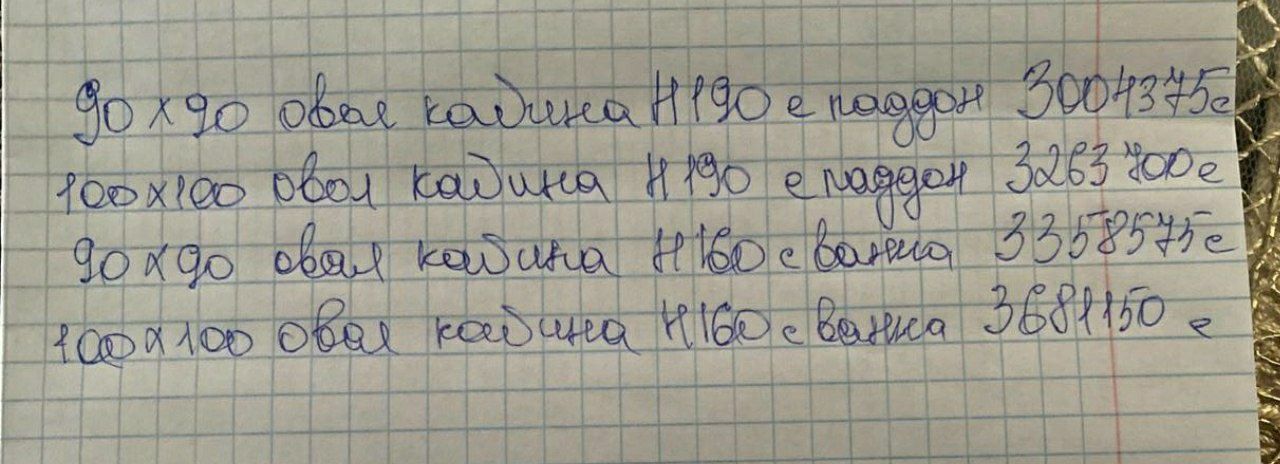 90х90 овал кабина Н190 с паддон 3004375с
100х100 овал кабина Н190 с паддон 3263700с
90х90 овал кабина Н160 с ванна 3358575с
100х100 овал кабина Н160 с ванна 3681150 с